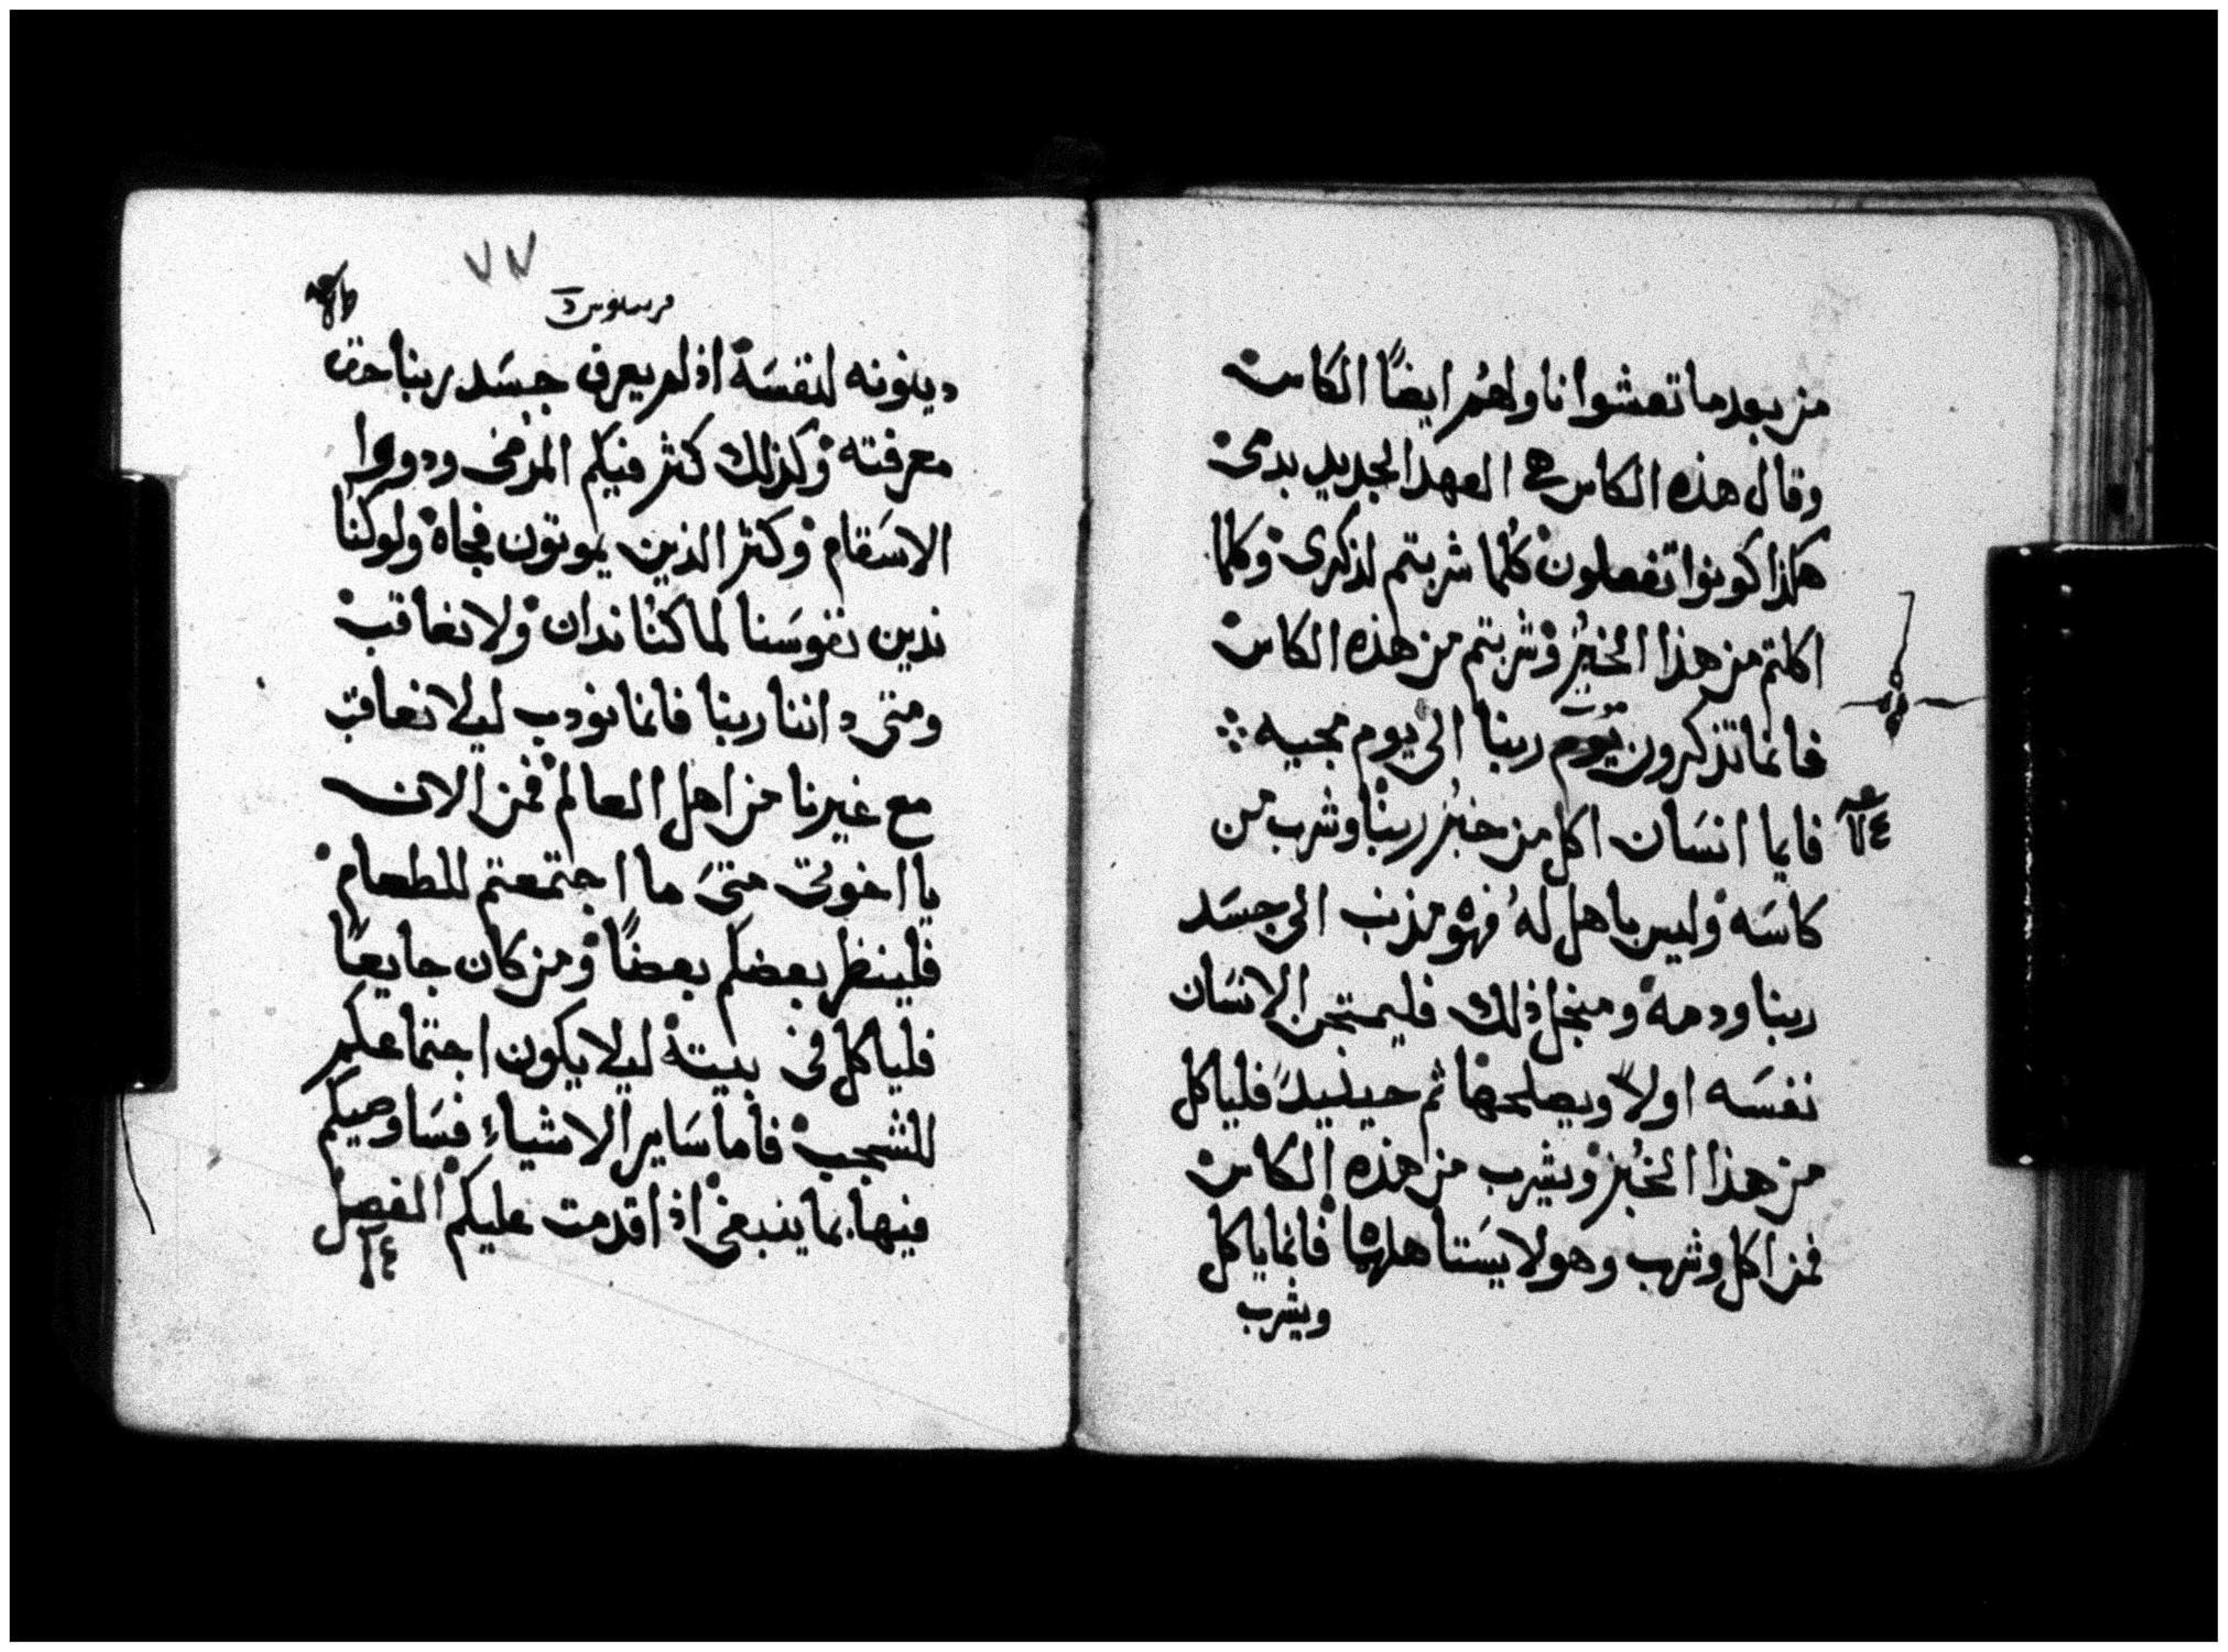 من بعد ما تعشوا ناولهم ايضًا الكاس
وقال هذه الكاس هى العهد الجديد بدمى
هكذا كونوا تفعلون كلما شربتم لذكرى وكلما
اكلتم من هذا الخبز وشربتم من هذه الكاس
فانما تذكرون موت ربنا الى يوم مجيه
فايما انسان اكل من خبز ربنا وشرب من
كاسه وليس باهل له فهو مذنب الى جسد
ربنا ودمه ومنجل ذلك فليمتحن الانسان
نفسه اولاً ويصلحها ثم حينيدً فلياكل
من هذا الخبز ويشرب من هذه الكاس
فمن اكل وشرب وهو لا يستاهلهما فانما ياكل
ويشرب
٧٧
دينونه لنفسه اذ لم يعرف جسد ربنا حق
معرفته وكذلك كثر فيكم المرضى ودووا
الاسقام وكثر الذين يموتون فجاه ولو كنا
ندين نفوسنا لما كنا ندان ولا نعاقب
ومتى داننا ربنا فانما نودب ليلا نعاقب
مع غيرنا من اهل العالم فمن الان
يا اخوتى متى ما اجتمعتم للطعام
فلينظر بعضكم بعضًا ومن كان جايعًا
فلياكل فى بيته ليلا يكون اجتماعكم
للشجب فاما ساير الاشياء فساوصيكم
فيها بما ينبغى اذا قدمت عليكم الفصل
١٤